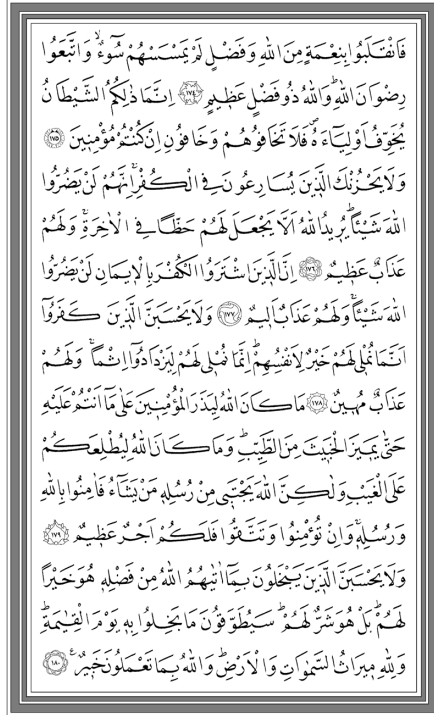 فَانْقَلَبُوا بِنِعْمَةٍ مِنَ اللّٰهِ وَفَضْلٍ لَمْ يَمْسَسْهُمْ سُٓوءٌۙ وَاتَّبَعُوا
رِضْوَانَ اللّٰهِۜ وَاللّٰهُ ذُو فَضْلٍ عَظ۪يمٍ ﴿١٧٤﴾ اِنَّمَا ذٰلِكُمُ الشَّيْطَانُ
يُخَوِّفُ اَوْلِيَٓاءَهُۖ فَلَا تَخَافُوهُمْ وَخَافُونِ اِنْ كُنْتُمْ مُؤْمِن۪ينَ ﴿١٧٥﴾
وَلَا يَحْزُنْكَ الَّذ۪ينَ يُسَارِعُونَ فِي الْكُفْرِۚ اِنَّهُمْ لَنْ يَضُرُّوا
اللّٰهَ شَيْـًٔاۜ يُر۪يدُ اللّٰهُ اَلَّا يَجْعَلَ لَهُمْ حَظًّا فِي الْاٰخِرَةِۚ وَلَهُمْ
عَذَابٌ عَظ۪يمٌ ﴿١٧٦﴾ اِنَّ الَّذ۪ينَ اشْتَرَوُا الْكُفْرَ بِالْا۪يمَانِ لَنْ يَضُرُّوا
اللّٰهَ شَيْـًٔاۚ وَلَهُمْ عَذَابٌ اَل۪يمٌ ﴿١٧٧﴾ وَلَا يَحْسَبَنَّ الَّذ۪ينَ كَفَرُٓوا
اَنَّمَا نُمْل۪ي لَهُمْ خَيْرٌ لِاَنْفُسِهِمْۜ اِنَّمَا نُمْل۪ي لَهُمْ لِيَزْدَادُٓوا اِثْمًاۚ وَلَهُمْ
عَذَابٌ مُه۪ينٌ ﴿١٧٨﴾ مَا كَانَ اللّٰهُ لِيَذَرَ الْمُؤْمِن۪ينَ عَلٰى مَٓا اَنْتُمْ عَلَيْهِ
حَتّٰى يَم۪يزَ الْخَب۪يثَ مِنَ الطَّيِّبِۜ وَمَا كَانَ اللّٰهُ لِيُطْلِعَكُمْ
عَلَى الْغَيْبِ وَلٰكِنَّ اللّٰهَ يَجْتَب۪ي مِنْ رُسُلِه۪ مَنْ يَشَٓاءُ فَاٰمِنُوا بِاللّٰهِ
وَرُسُلِه۪ۚ وَاِنْ تُؤْمِنُوا وَتَتَّقُوا فَلَكُمْ اَجْرٌ عَظ۪يمٌ ﴿١٧٩﴾
وَلَا يَحْسَبَنَّ الَّذ۪ينَ يَبْخَلُونَ بِمَٓا اٰتٰيهُمُ اللّٰهُ مِنْ فَضْلِه۪ هُوَ خَيْرًا
لَهُمْۜ بَلْ هُوَ شَرٌّ لَهُمْۜ سَيُطَوَّقُونَ مَا بَخِلُوا بِه۪ يَوْمَ الْقِيٰمَةِۜ
وَلِلّٰهِ م۪يرَاثُ السَّمٰوَاتِ وَالْاَرْضِۜ وَاللّٰهُ بِمَا تَعْمَلُونَ خَب۪يرٌ۟ ﴿١٨٠﴾